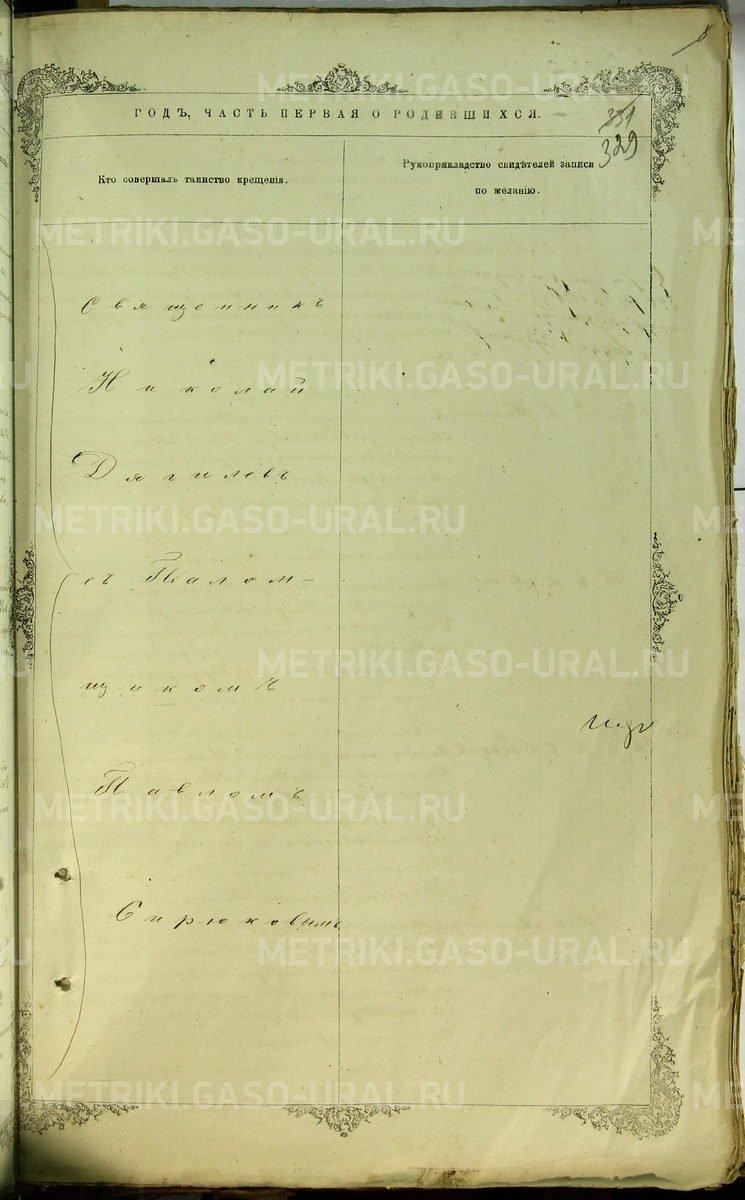 8
ГОДЪ, ЧАСТЬ ПЕРВАЯ О РОДИВШИХСЯ.
331
329
Кто совершалъ таинство крещенія.
Рукоприкладство свидѣтелей записи
по желанію.
Священникъ
Николай
Дягилевъ
съ Псалом-
щикомъ
Павломъ
Сирюковымъ
METRIKI.GASO-URAL.RU